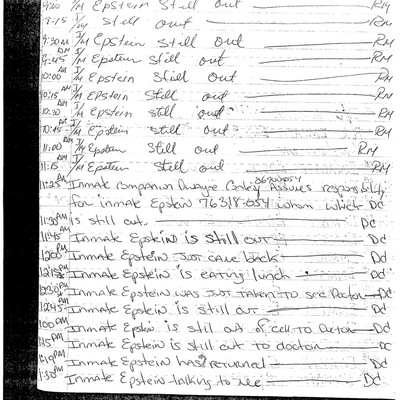 9:00 I/M Epstein still out RM
9:15 I/M Still out RM
9:30 AM I/M Epstein Still out RM
9:45 AM I/M Epstein Still out RM
10:00 AM I/M Epstein Still out RM
10:15 AM I/M Epstein Still out RM
10:30 AM I/M Epstein still out RM
10:45 AM I/M Epstein Still out RM
11:00 AM I/M Epstein Still out RM
11:15 AM I/M Epstein Still out RM
11:25 AM Inmate Companion Dwayne Conley Assumes responsibility
for inmate Epstein 76318-054 whom which DC
11:30 AM is still out. DC
11:45 AM Inmate Epstein is still out DC
12:00 PM Inmate Epstein Just came back DC
12:15 PM Inmate Epstein is eating lunch DC
12:30 PM Inmate Epstein was Just Taken To see Doctor DC
12:45 PM Inmate Epstein is still out DC
1:00 PM Inmate Epstein is still out of cell to Doctor DC
1:15 PM Inmate Epstein is still out to doctor DC
1:19 PM Inmate Epstein has returned DC
1:30 PM Inmate Epstein talking to me DC